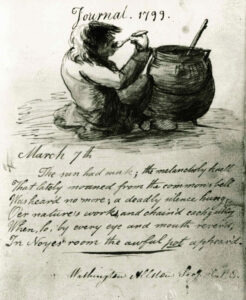 Journal. 1799.
March 7th
The sun had sunk; the melancholy knell
That lately mourned from the common's bell
Was heard no more; a deadly silence hung
O'er nature's works and chain'd each
When, lo, by every eye and mouth rever'd,
In Noyes' room the awful pot appear'd.
Washington Allston